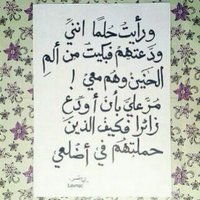 ورأيتُ حلمًا انني
ودعتهمْ فبكيت من ألمِ
الحنين وهم معي !
مرٌ علي بأن أودع
زائرا فكيف الذين
حملتهم في أضلعي